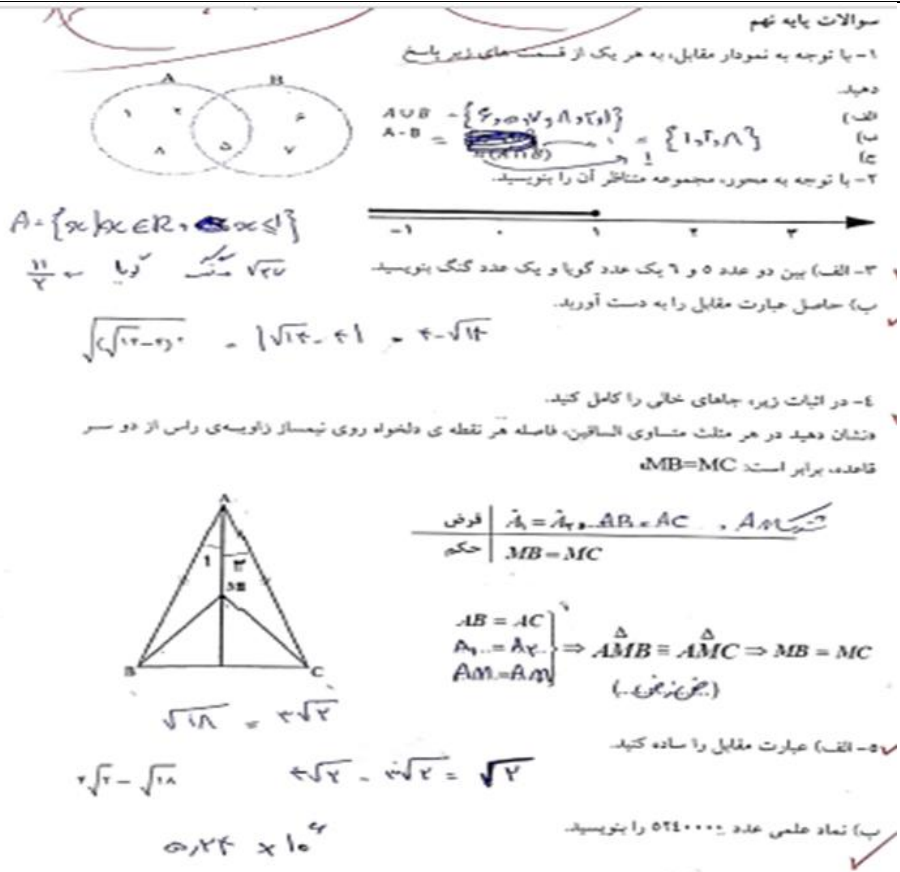 سوالات پایه نهم
۱- با توجه به نمودار مقابل، به هر یک از قسمت های زیر پاسخ
دهید.
A B
۱ ۲ ۸ ۵ ۶ ۷
الف) A∪B = {۶,۵,۷,۸,۲,۱}
ب) A-B = {۱,۲,۸}
ج) ۱
۲- با توجه به محور، مجموعه متناظر آن را بنویسید.
A={x|x∈R, x≤1}
-۱ ۰ ۱ ۲ ۳
۳- الف) بین دو عدد ۵ و ۶ یک عدد گویا و یک عدد گنگ بنویسید.
√۲۷ گنگ گویا ← ۱۱/۲
ب) حاصل عبارت مقابل را به دست آورید.
√(√۱۴-۴)² = |√۱۴-۴| = ۴-√۱۴
٤- در اثبات زیر، جاهای خالی را کامل کنید.
«نشان دهید در هر مثلث متساوی الساقین، فاصله هر نقطه ی دلخواه روی نیمساز زاویه‌ی راس از دو سر
قاعده، برابر است: MB=MC»
فرض A₁ = A₂ , AB = AC , AM مشترک
حکم MB = MC
A
۱ ۲
M
B C
AB = AC
A₁ = A₂
AM = AM
⇒ AMB ≅ AMC ⇒ MB = MC
(ض ز ض)
√۱۸ = ۳√۲
۵- الف) عبارت مقابل را ساده کنید.
۴√۲ - √۱۸ ۴√۲ - ۳√۲ = √۲
ب) نماد علمی عدد ۵۲٤۰۰۰۰ را بنویسید.
۵,۲۴ × ۱۰⁶